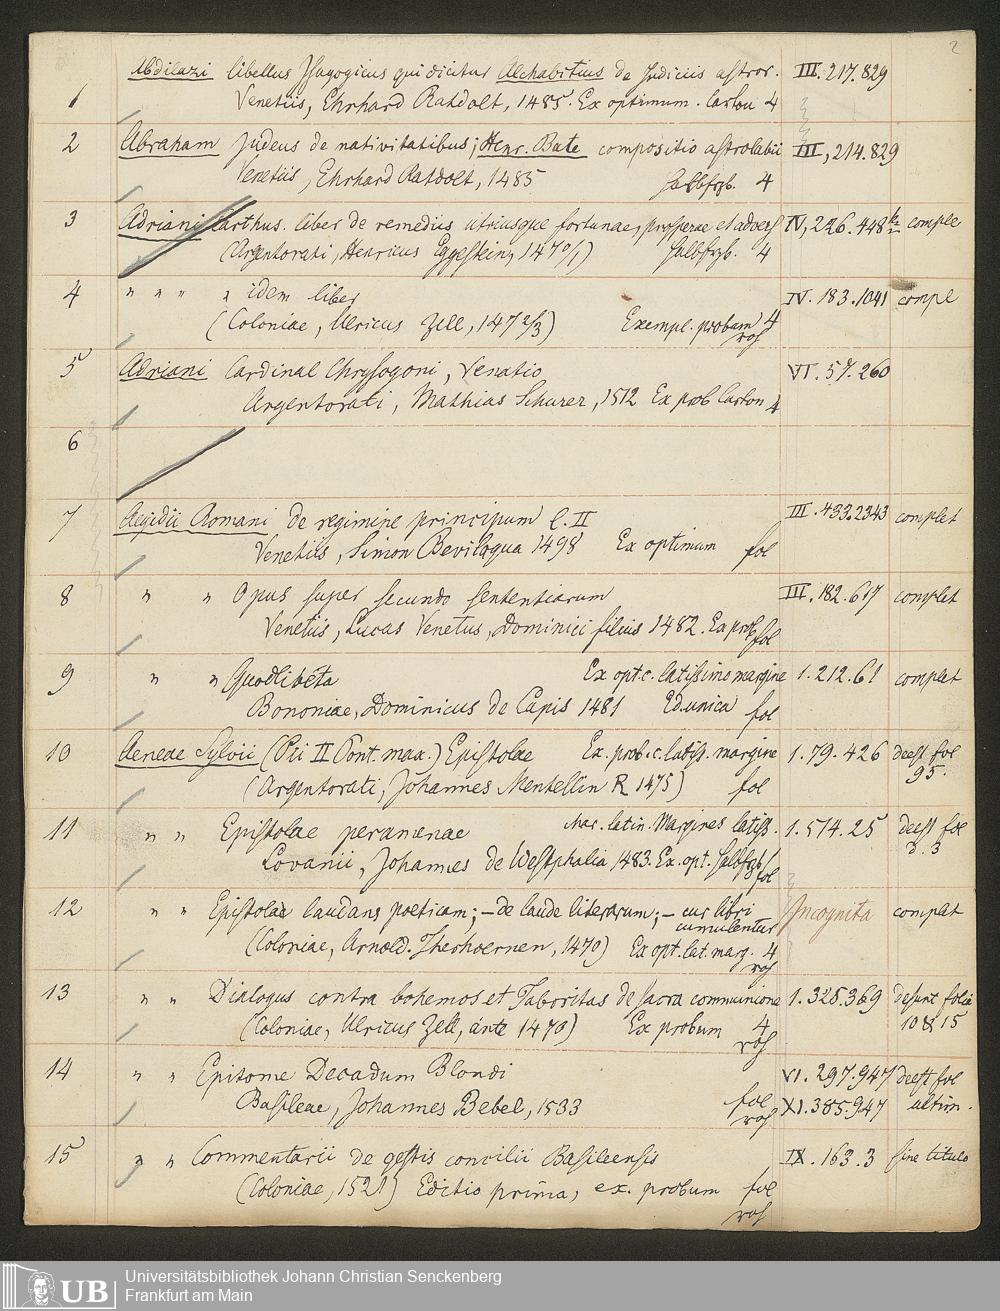 2
Abdilazi libellus Isagogicus qui dicitur Alchabitius de Judiciis astror. III. 217. 829
1 Venetiis, Ehrhard Ratdolt, 1485. Ex optimum. Carton 4
2 Abraham Judeus de nativitatibus; Henr. Bate compositio astrolabii III, 214. 829
Venetiis, Ehrhard Ratdolt, 1485 Halbfrzb. 4
3 Adriani Carthus. liber de remediis utriusque fortunae, prosperae et advers IV, 226. 448 comple
(Argentorati, Henricus Eggestein, 1470/1) Halbfrzb. 4
4 " " " " idem liber IV. 183. 1041 compl
(Coloniae, Ulricus Zell, 1472/3) Exempl. probum 4
roh
5 Adriani Cardinal Chrysogoni, Venatio VI. 57. 260
Argentorati, Mathias Schurer, 1512 Ex prob Carton 4
6
7 Aegidii Romani de regimine principum l. II III. 433. 2343 complet
Venetiis, Simon Bevilaqua 1498 Ex optimum fol
8 " " Opus super secundo sententiarum III. 182. 617 complet
Venetiis, Lucas Venetus, Dominici filius 1482. Ex prob fol
9 " " Quodlibeta Ex opt. c. latissimo margine 1. 212. 61 complet
Bononiae, Dominicus de Lapis 1481 Ed. unica fol
10 Aeneae Sylvii (Pii II Pont. max.) Epistolae Ex. prob. c. latiss. margine 1. 79. 426 deest fol
95.
(Argentorati, Johannes Mentellin R 1475) fol
11 " " Epistolae peramenae char. latin. Margines latiss. 1. 514. 25 deest fol
3. 3
Lovanii, Johannes de Westphalia 1483. Ex. opt. Halbfrzb/ fol
12 " " Epistolae laudans poeticam; – de laude literarum; – cur libri Incognita complet
cumulentur
(Coloniae, Arnold. Therhoernen, 1470) Ex opt. lat. marg. 4
roh
13 " " Dialogus contra bohemos et Taboritas de sacra communione 1. 325. 369 desunt folia
10 & 15
(Coloniae, Ulricus Zell, ante 1470) Ex probum 4
roh
14 " " Epitome Decadum Blondi VI. 297. 947 deest fol
Basileae, Johannes Bebel, 1533 fol XI. 385. 947 ultim.
roh
15 " " Commentarii de gestis concilii Basileensis IX. 163. 3 sine titulo
(Coloniae, 1521) Editio prima, ex. probum fol
roh
UB
Universitätsbibliothek Johann Christian Senckenberg
Frankfurt am Main